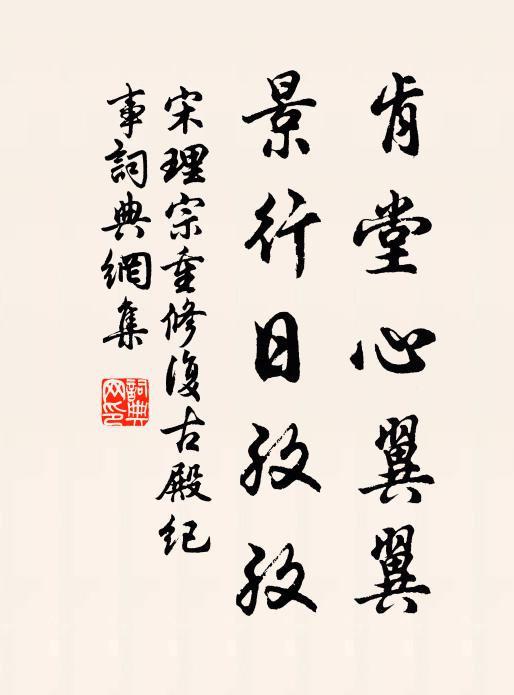 肯堂心翼翼
景行日孜孜
宋理宗重修復古殿紀
事詞典網集
詞典網印